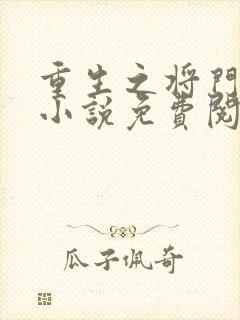 重生之将門
小説免費閱
瓜子佩奇